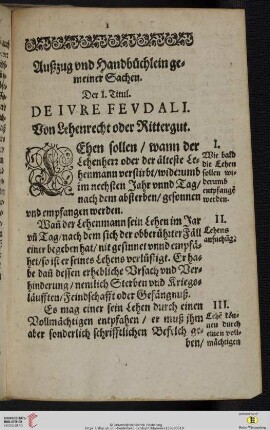 1
Außzug vnd Handbüchlein ge-
meiner Sachen.
Der I. Titul.
DE IVRE FEVDALI.
Von Lehenrecht oder Rittergut.
LEhen sollen / wann der
Lehenherr oder der älteste Le-
henmann verstirbt / widerumb
im nechsten Jahr vnnd Tag /
nach dem absterben / gesonnen
vnd empfangen werden.
I.
Wie bald
die Lehen
sollen wi-
derumb
empfangē
werden.
Wan̄ der Lehenmann sein Lehen im Jar
vn̄ Tag / nach dem sich der obberührter Fäll
einer begeben hat / nit gesinnet vnnd empfä-
het / so ist er seines Lehens verlüstiget. Er ha-
be dañ dessen erhebliche Vrsach vnd Ver-
hinderung / nemlich Sterben vnd Kriegs-
läufften / Feindschafft oder Gefängnuß.
II.
Lehens
Es mag einer sein Lehen durch einen
Vollmächtigen entpfahen / er muß jhm
aber sonderlich schrifftlichen Befelch ge-
ben /
III.
Lehē kön-
nen durch
einen voll-
mächtigen